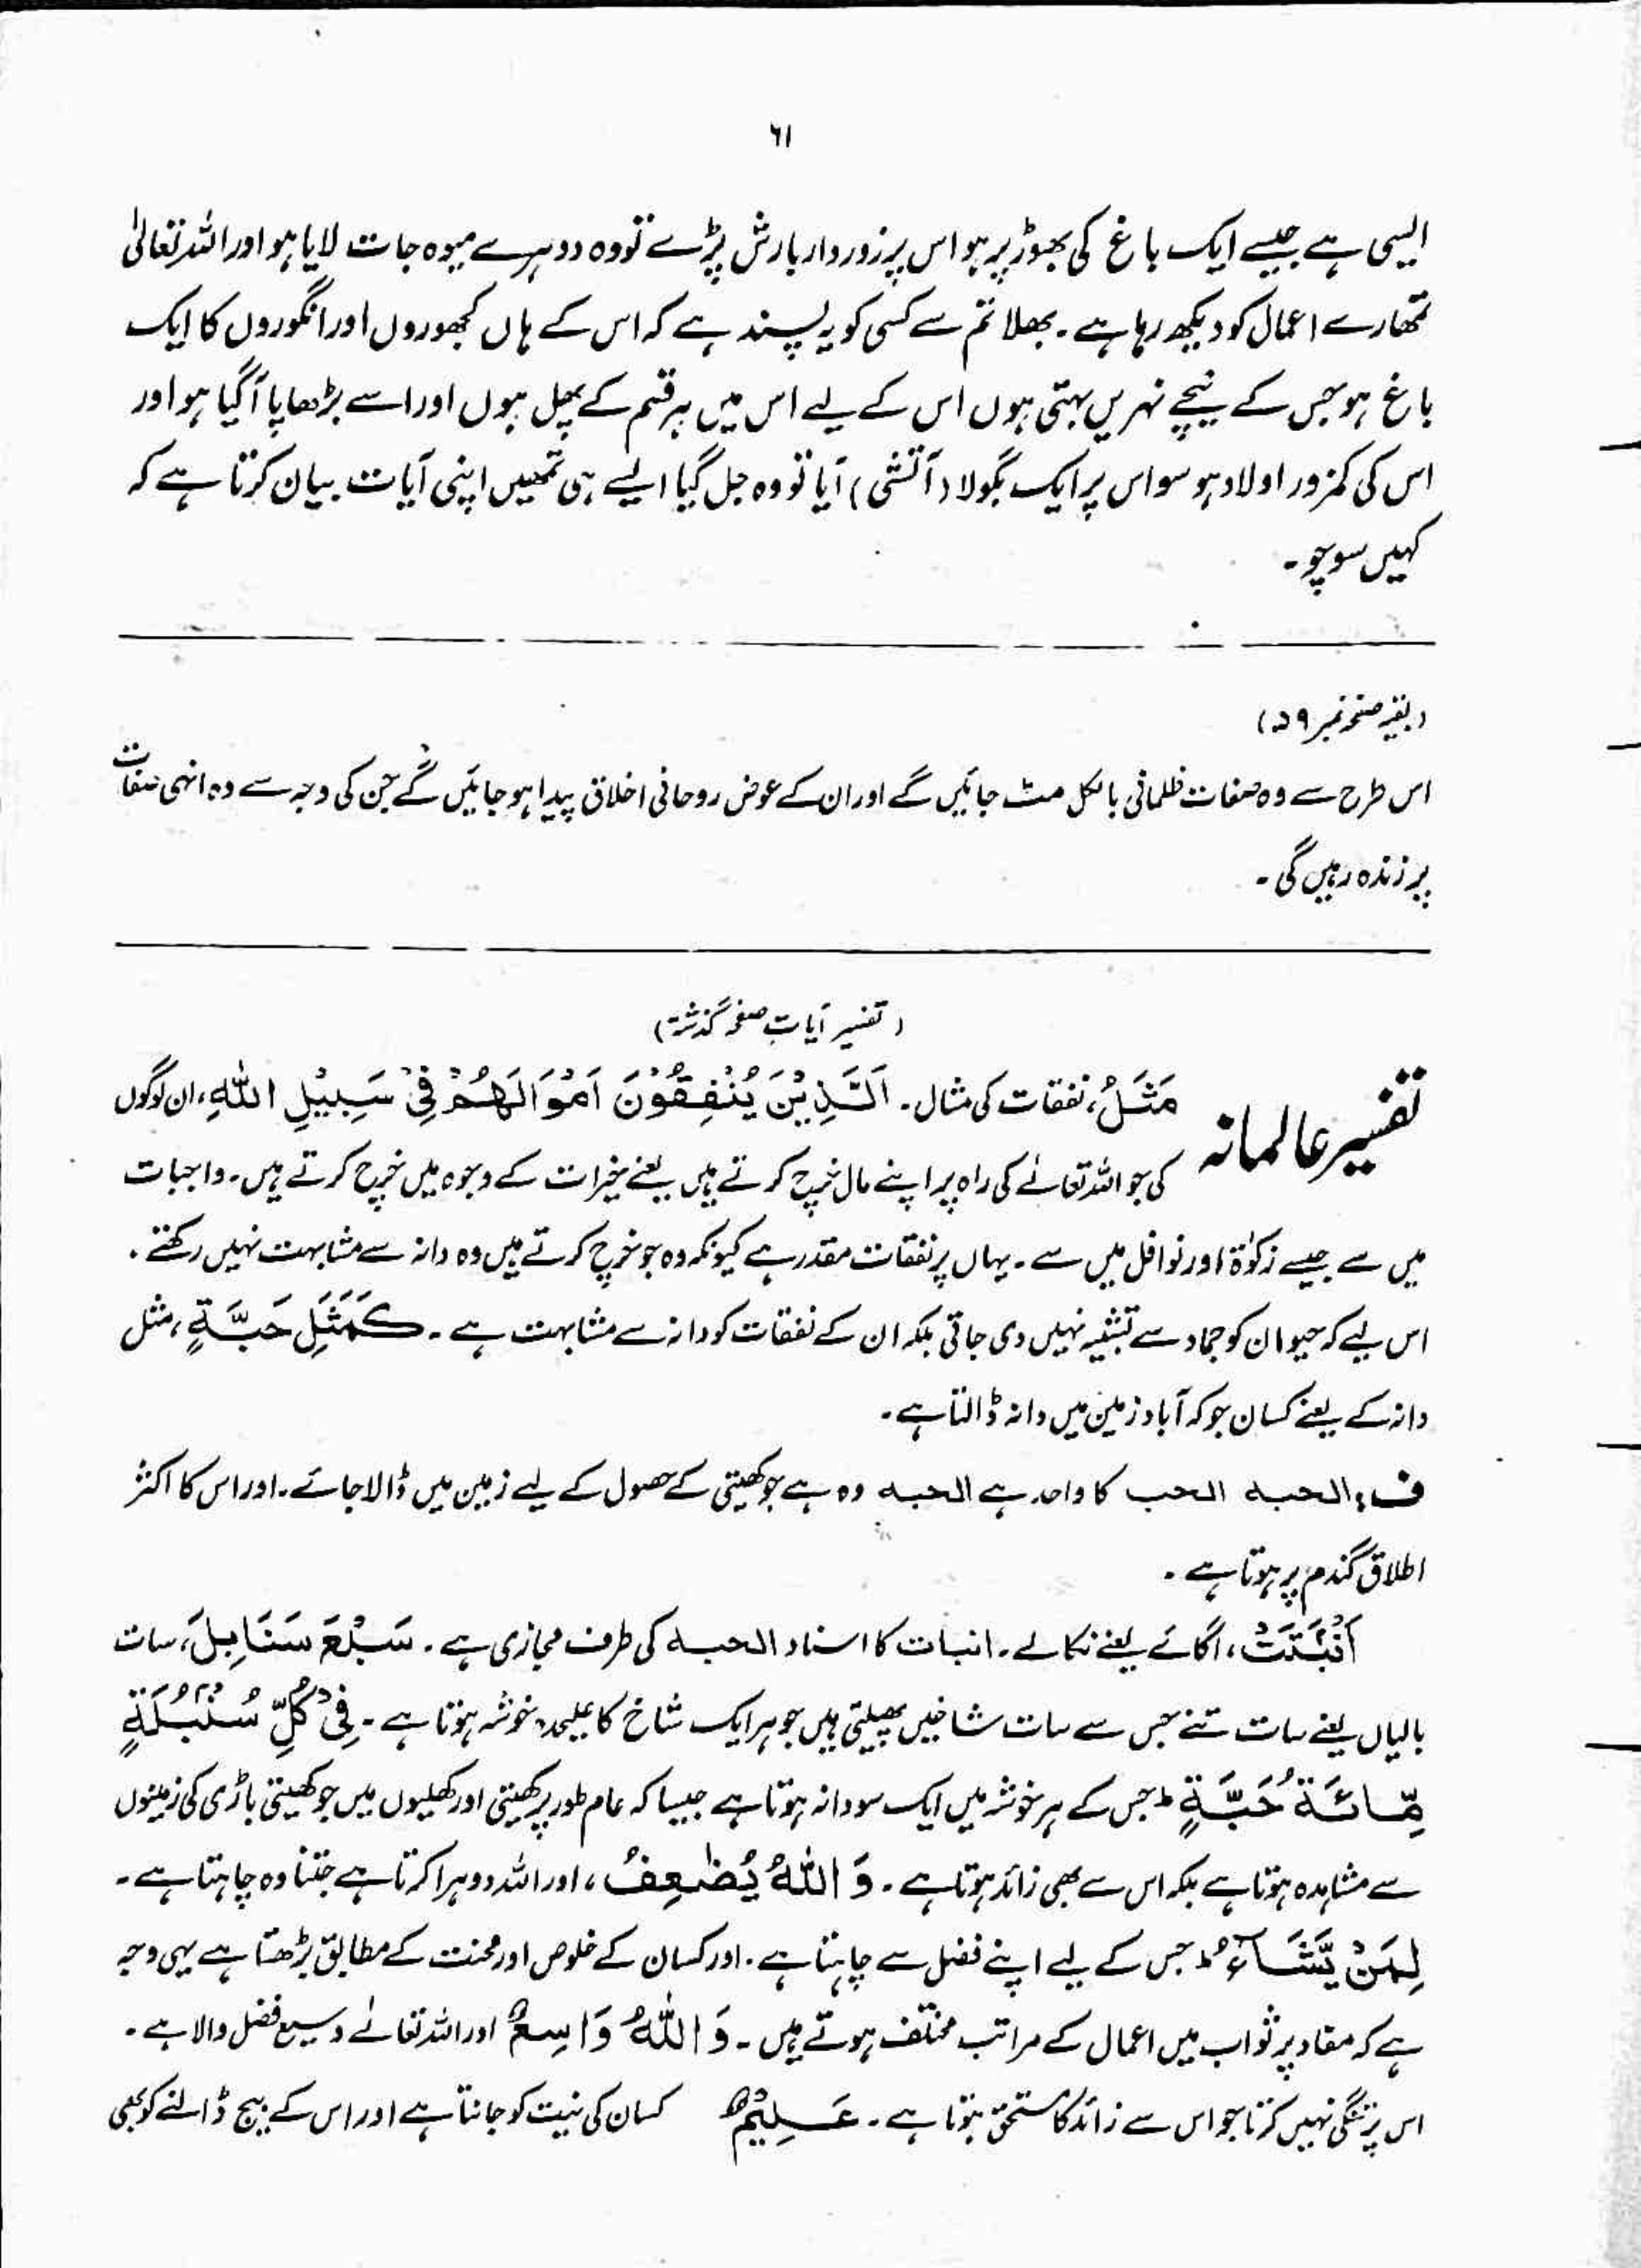 ٦١
ایسی ہے جیسے ایک باغ کی بھوڑ پر ہو اس پر زوردار بارش پڑے تو وہ دوہرے میوہ جات لایا ہو اور اللہ تعالیٰ
تمھارے اعمال کو دیکھ رہا ہے ۔ بھلا تم سے کسی کو یہ پسند ہے کہ اس کے ہاں کھجوروں اور انگوروں کا ایک
باغ ہو جس کے نیچے نہریں بہتی ہوں اس کے لیے اس میں ہر قسم کے پھل ہوں اور اسے بڑھاپا آگیا ہو اور
اس کی کمزور اولاد ہو سو اس پر ایک بگولا (آتشی) آیا تو وہ جل گیا ایسے ہی تمھیں اپنی آیات بیان کرتا ہے کہ
کہیں سوچو ۔
(بقیہ صفحہ نمبر ۵۹)
اس طرح سے وہ صفات ظلمانی بالکل مٹ جائیں گے اور ان کے عوض روحانی اخلاق پیدا ہو جائیں گے جن کی وجہ سے وہ انہی صفات
پر زندہ رہیں گی ۔
(تفسیر آیاتِ صفحہ گذشتہ)
تفسیر عالمانہ مَثَلُ، نفقات کی مثال ۔ اَلَّذِیْنَ یُنْفِقُوْنَ اَمْوَالَهُمْ فِیْ سَبِیْلِ اللّٰهِ، ان لوگوں
کی جو اللہ تعالےٰ کی راہ پر اپنے مال خرچ کرتے ہیں یعنے خیرات کے وجوہ میں خرچ کرتے ہیں ۔ واجبات
میں سے جیسے زکوٰۃ اور نوافل میں سے ۔ یہاں پر نفقات مقدر ہے کیونکہ وہ جو خرچ کرتے ہیں وہ دانہ سے مشابہت نہیں رکھتے ۔
اس لیے کہ حیوان کو جماد سے تشبیہ نہیں دی جاتی بلکہ ان کے نفقات کو دانہ سے مشابہت ہے ۔ كَمَثَلِ حَبَّةٍ، مثل
دانہ کے یعنے کسان جو کہ آباد زمین میں دانہ ڈالتا ہے ۔
ف؛ الحبہ الحب کا واحد ہے الحبہ وہ ہے جو کھیتی کے حصول کے لیے زمین میں ڈالا جائے ۔ اور اس کا اکثر
اطلاق گندم پر ہوتا ہے ۔
اَنْۢبَتَتْ، اگائے یعنے نکالے ۔ انبات کا اسناد الحبہ کی طرف مجازی ہے ۔ سَبْعَ سَنَابِلَ، سات
بالیاں یعنے سات تنے جس سے سات شاخیں پھیلتی ہیں جو ہر ایک شاخ کا علیحدہ خوشہ ہوتا ہے ۔ فِیْ كُلِّ سُنْۢبُلَةٍ
مِّائَةُ حَبَّةٍ ط جس کے ہر خوشہ میں ایک سو دانہ ہوتا ہے جیسا کہ عام طور پر کھیتی اور کھلیوں میں جو کھیتی باڑی کی زمینوں
سے مشاہدہ ہوتا ہے بلکہ اس سے بھی زائد ہوتا ہے ۔ وَ اللّٰهُ یُضٰعِفُ، اور اللہ دوہرا کرتا ہے جتنا وہ چاہتا ہے ۔
لِمَنْ یَّشَآءُ ط جس کے لیے اپنے فضل سے چاہتا ہے ۔ اور کسان کے خلوص اور محنت کے مطابق بڑھتا ہے یہی وجہ
ہے کہ مقادیر ثواب میں اعمال کے مراتب مختلف ہوتے ہیں ۔ وَ اللّٰهُ وَاسِعٌ اور اللہ تعالےٰ وسیع فضل والا ہے ۔
اس پر تنگی نہیں کرتا جو اس سے زائد کا مستحق ہوتا ہے ۔ عَلِیْمٌ کسان کی نیت کو جانتا ہے اور اس کے بیج ڈالنے کو بھی